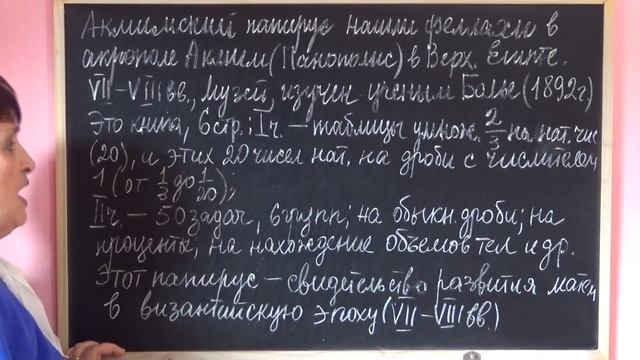 Акмимский папирус нашли феллахи в
акрополе Акмим (Панополис) в Верх. Египте.
VII–VIII вв., Музей, изучен ученым Байе (1892г)
Это книга, 6 стр.: I ч. – таблицы умнож. 2/3 на нат. чис
(20), и этих 20 чисел нат. на дроби с числителем
1 (от 1/3 до 1/20);
II ч. – 50 задач, 6 групп: на обыкн. дроби; на
проценты, на нахождение объемов тел и др.
Этот папирус – свидетельство развития матем
в византийскую эпоху (VII–VIII вв.)